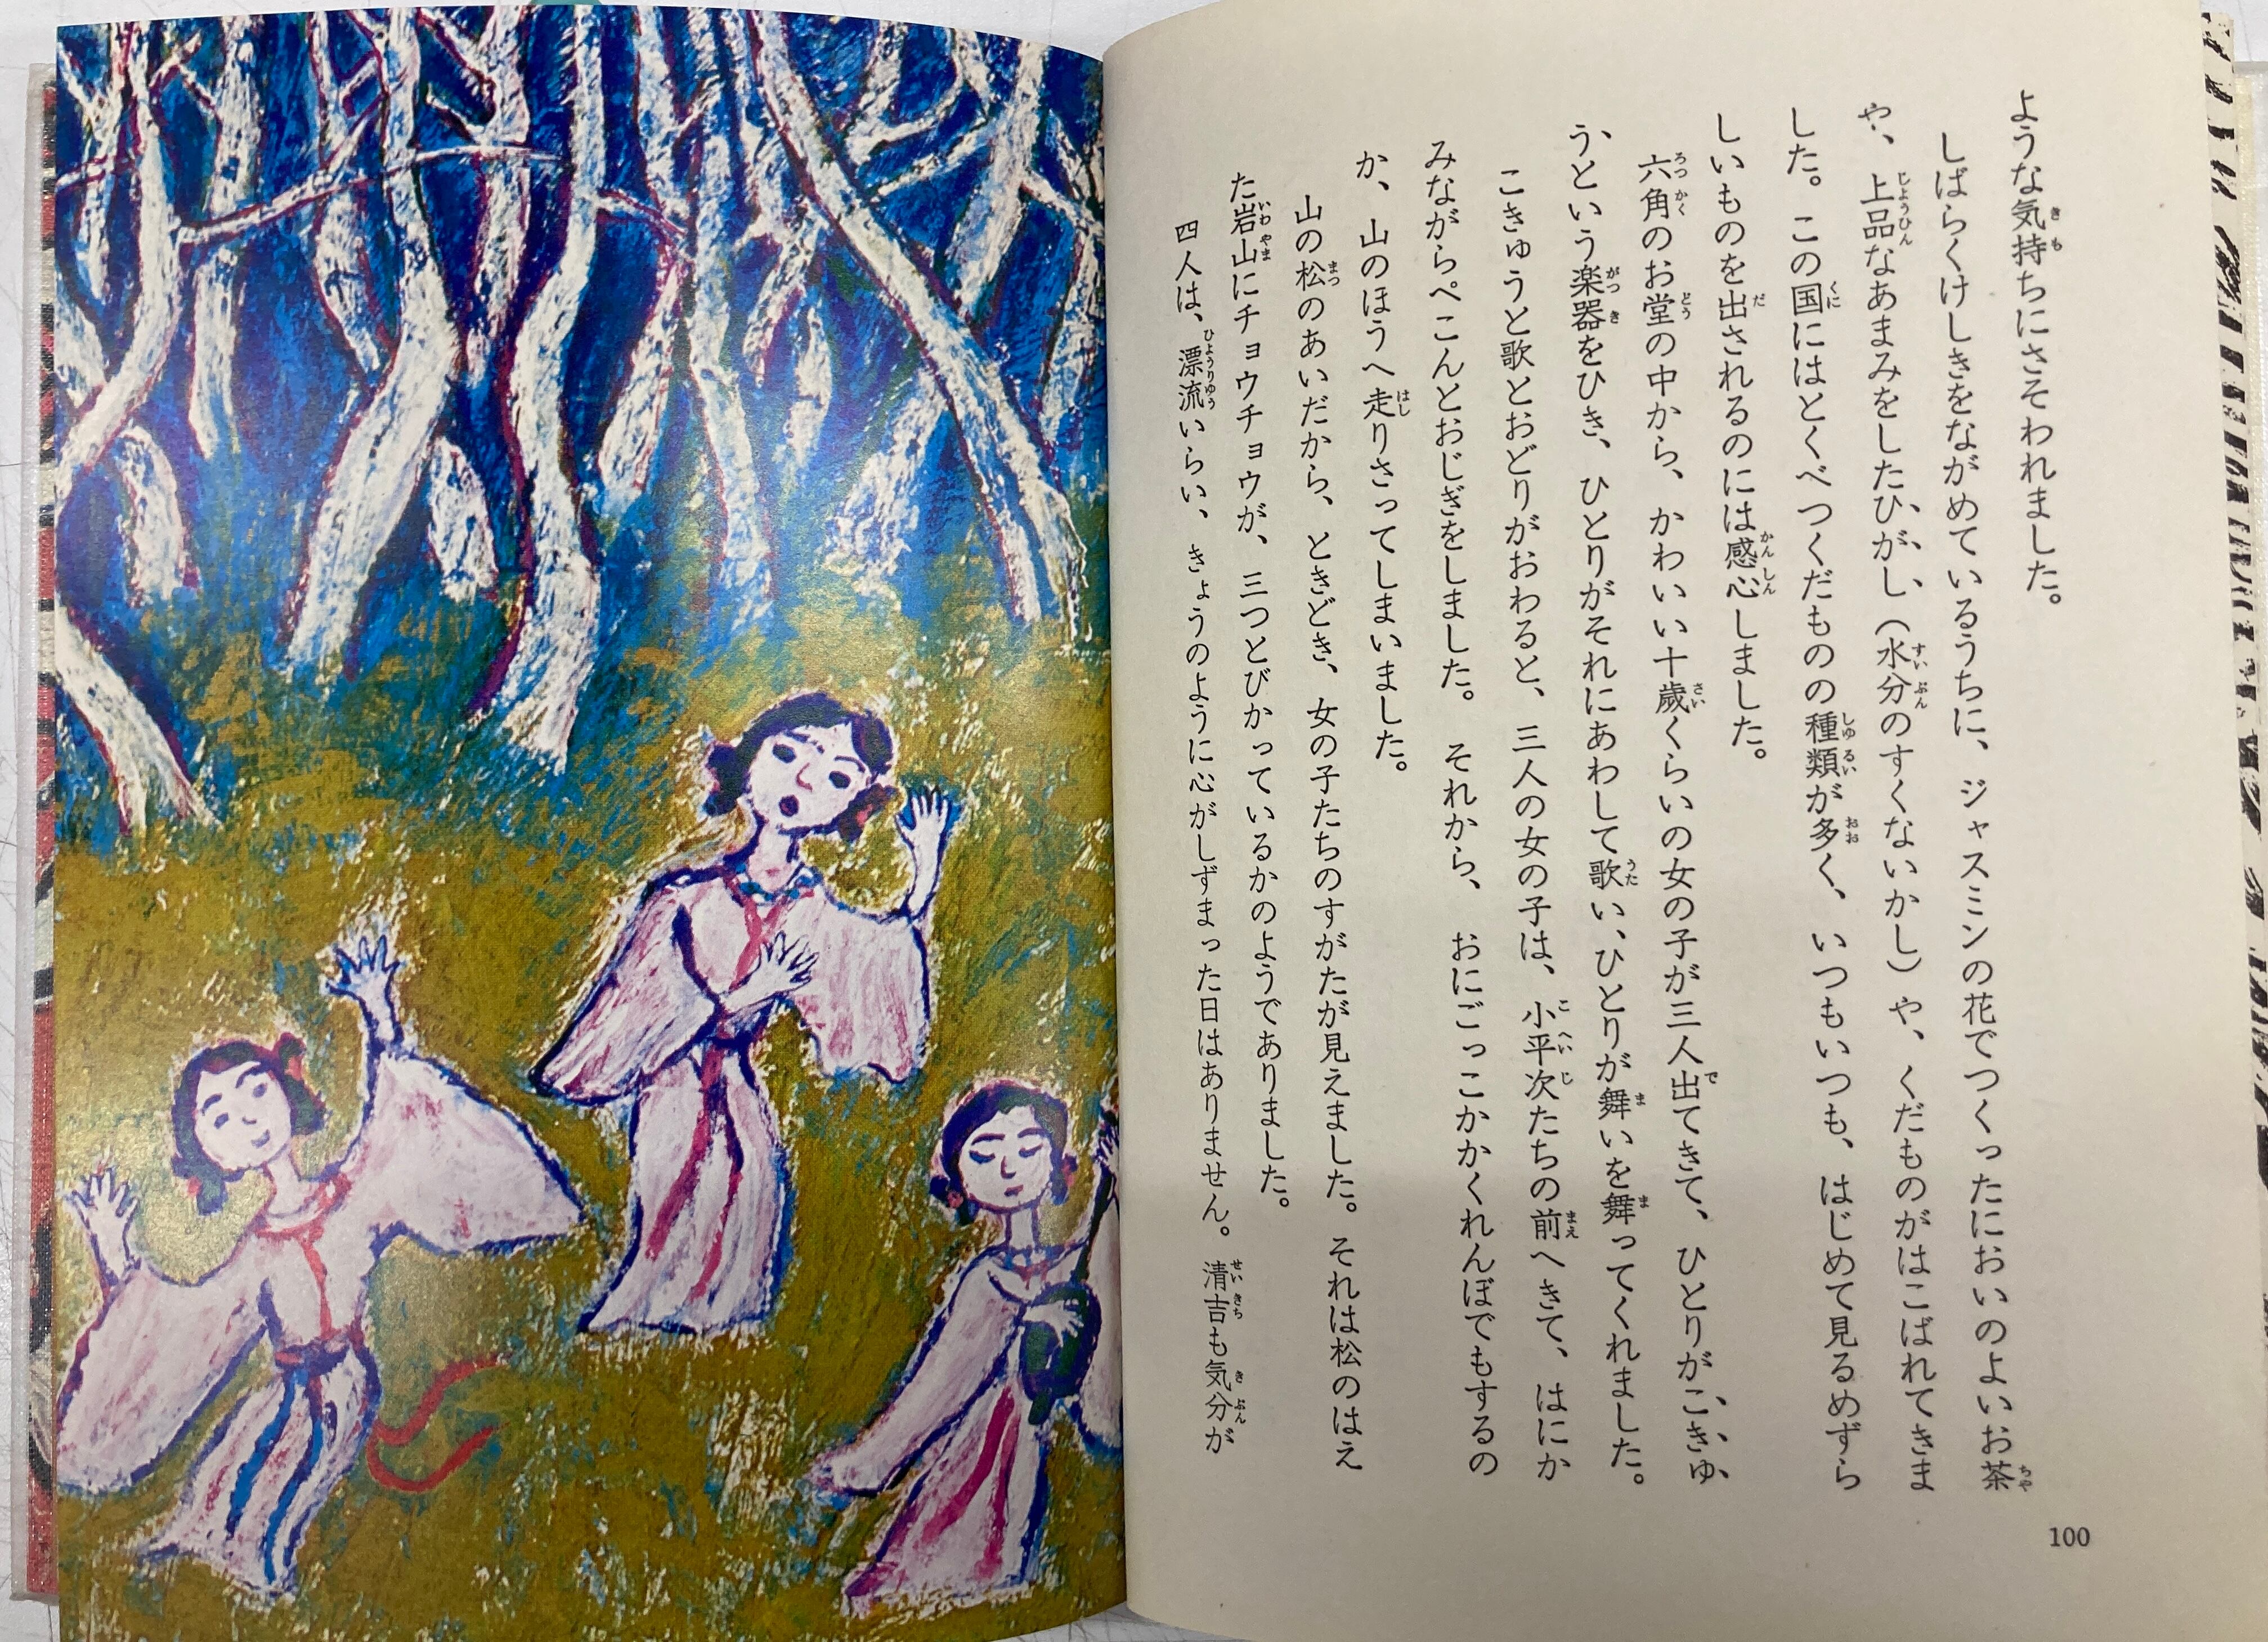 ような気持ちにさそわれました。
しばらくけしきをながめているうちに、ジャスミンの花でつくったにおいのよいお茶
や、上品なあまみをしたひがし、（水分のすくないかし）や、くだものがはこばれてきま
した。この国にはとくべつくだものの種類が多く、いつもいつも、はじめて見るめずら
しいものを出されるのには感心しました。
六角のお堂の中から、かわいい十歳くらいの女の子が三人出てきて、ひとりがこきゅ
うという楽器をひき、ひとりがそれにあわして歌い、ひとりが舞いを舞ってくれました。
こきゅうと歌とおどりがおわると、三人の女の子は、小平次たちの前へきて、はにか
みながらぺこんとおじぎをしました。それから、おにごっこかかくれんぼでもするの
か、山のほうへ走りさってしまいました。
山の松のあいだから、ときどき、女の子たちのすがたが見えました。それは松のはえ
た岩山にチョウチョウが、三つとびかっているかのようでありました。
四人は、漂流いらい、きょうのように心がしずまった日はありません。清吉も気分が
100